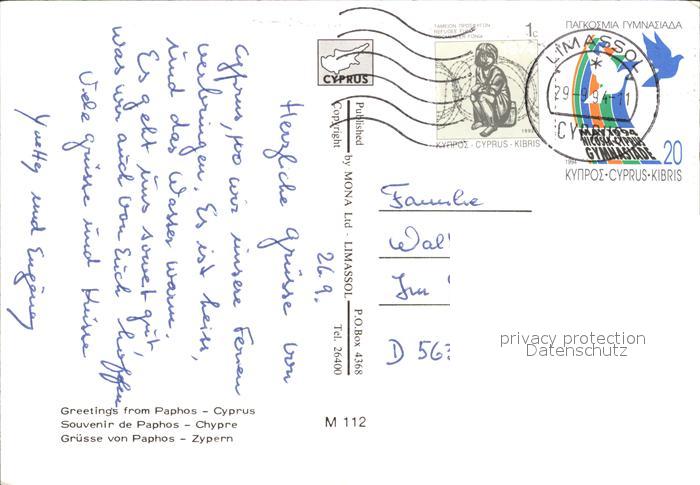 26.9.
Herzliche Grüsse von
Cyprus, wo wir unsere Ferien
verbringen. Es ist heiss,
und das Wasser warm.
Es geht uns soweit gut,
was wir auch von Euch hoffen
Viele Grüsse und Küsse
Yvette und
Greetings from Paphos - Cyprus
Souvenir de Paphos - Chypre
Grüsse von Paphos - Zypern
M 112
CYPRUS
Published by MONA Ltd - LIMASSOL. P.O.Box 4368
Copyright Tel. 26400
ΤΑΜΕΙΟΝ ΠΡΟΣΦΥΓΩΝ
REFUGEE FUND
1c
ΚΥΠΡΟΣ·CYPRUS·KIBRIS
ΠΑΓΚΟΣΜΙΑ ΓΥΜΝΑΣΙΑΔΑ
LIMASSOL
29-9 94-11
MAY 1994
NICOSIA-CYPRUS
GYMNASIADE
1994
20
ΚΥΠΡΟΣ·CYPRUS·KIBRIS
Familie
Wal
Im
D 563
privacy protection
Datenschutz